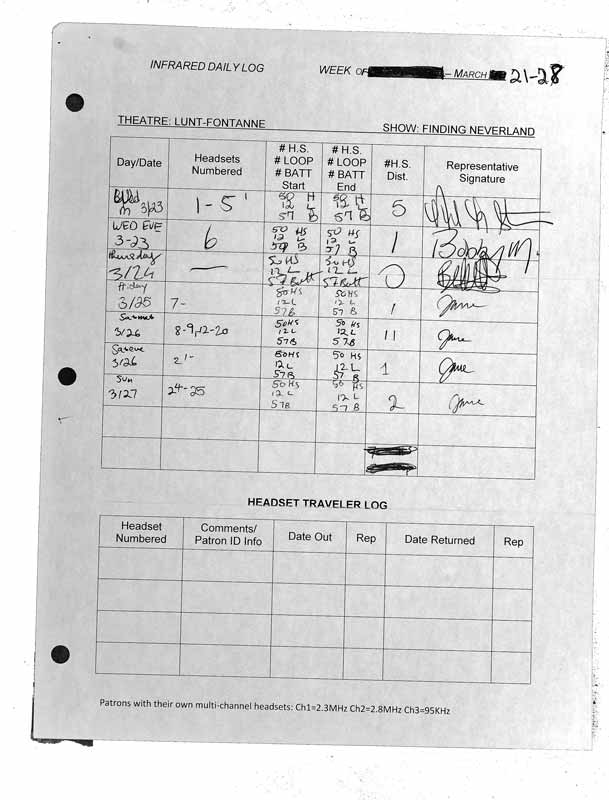 INFRARED DAILY LOG WEEK OF – MARCH 21-28
THEATRE: LUNT-FONTANNE SHOW: FINDING NEVERLAND
Day/Date Headsets Numbered # H.S. # LOOP # BATT Start # H.S. # LOOP # BATT End #H.S. Dist. Representative Signature
3/23 1-5 50 H 12 L 57 B 50 H 12 L 57 B 5
WED EVE 3-23 6 50 HS 12 L 57 B 50 HS 12 L 57 B 1 Bobby M.
Thursday 3/24 — 50 HS 12 L 57 Batt 50 HS 12 L 57 Batt 0
Friday 3/25 7- 50 HS 12 L 57B 50 HS 12 L 57 B 1 Jane
3/26 8-9, 12-20 50HS 12 L 57B 50 HS 12 L 57B 11 Jane
Sateve 3/26 21- 50HS 12 L 57B 50 HS 12 L 57 B 1 Jane
Sun 3/27 24-25 50 HS 12 L 57B 50 HS 12 L 57 B 2 Jane
HEADSET TRAVELER LOG
Headset Numbered Comments/ Patron ID Info Date Out Rep Date Returned Rep
Patrons with their own multi-channel headsets: Ch1=2.3MHz Ch2=2.8MHz Ch3=95KHz